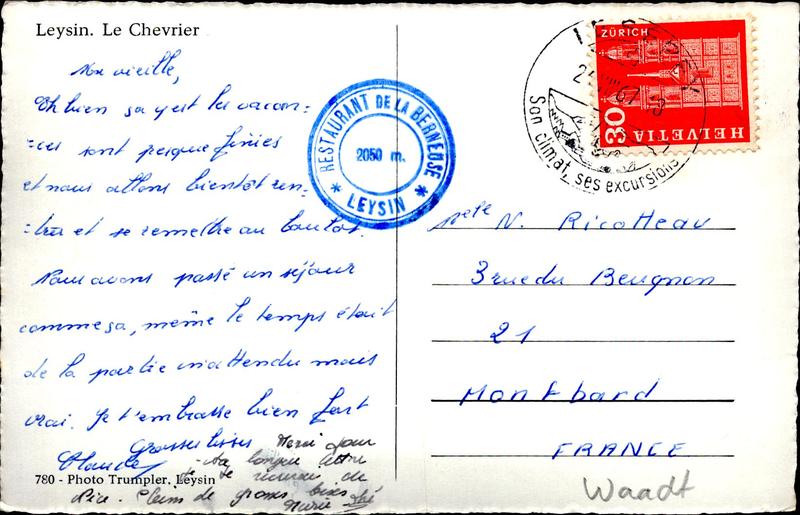 Leysin. Le Chevrier
Mon vieille,
Eh bien ça y est les vacan-
-ces sont presque finies
et nous allons bientôt ren-
-trer et se remettre au boulot.
Nous avons passé un séjour
comme ça, même le temps était
de la partie inattendu mais
vrai. Je t'embrasse bien fort
Grosses bises
Claude
Merci pour
ta longue lettre
de
Nice. Pleins de grosses bises
Marie
780 - Photo Trumpler, Leysin
RESTAURANT DE LA BERNEUSE
2050 m.
* LEYSIN *
LEYSIN
67
Son climat, ses excursions
ZÜRICH
30
HELVETIA
N. Ricotteau
3 rue du Beugnon
21
Montbard
FRANCE
Waadt